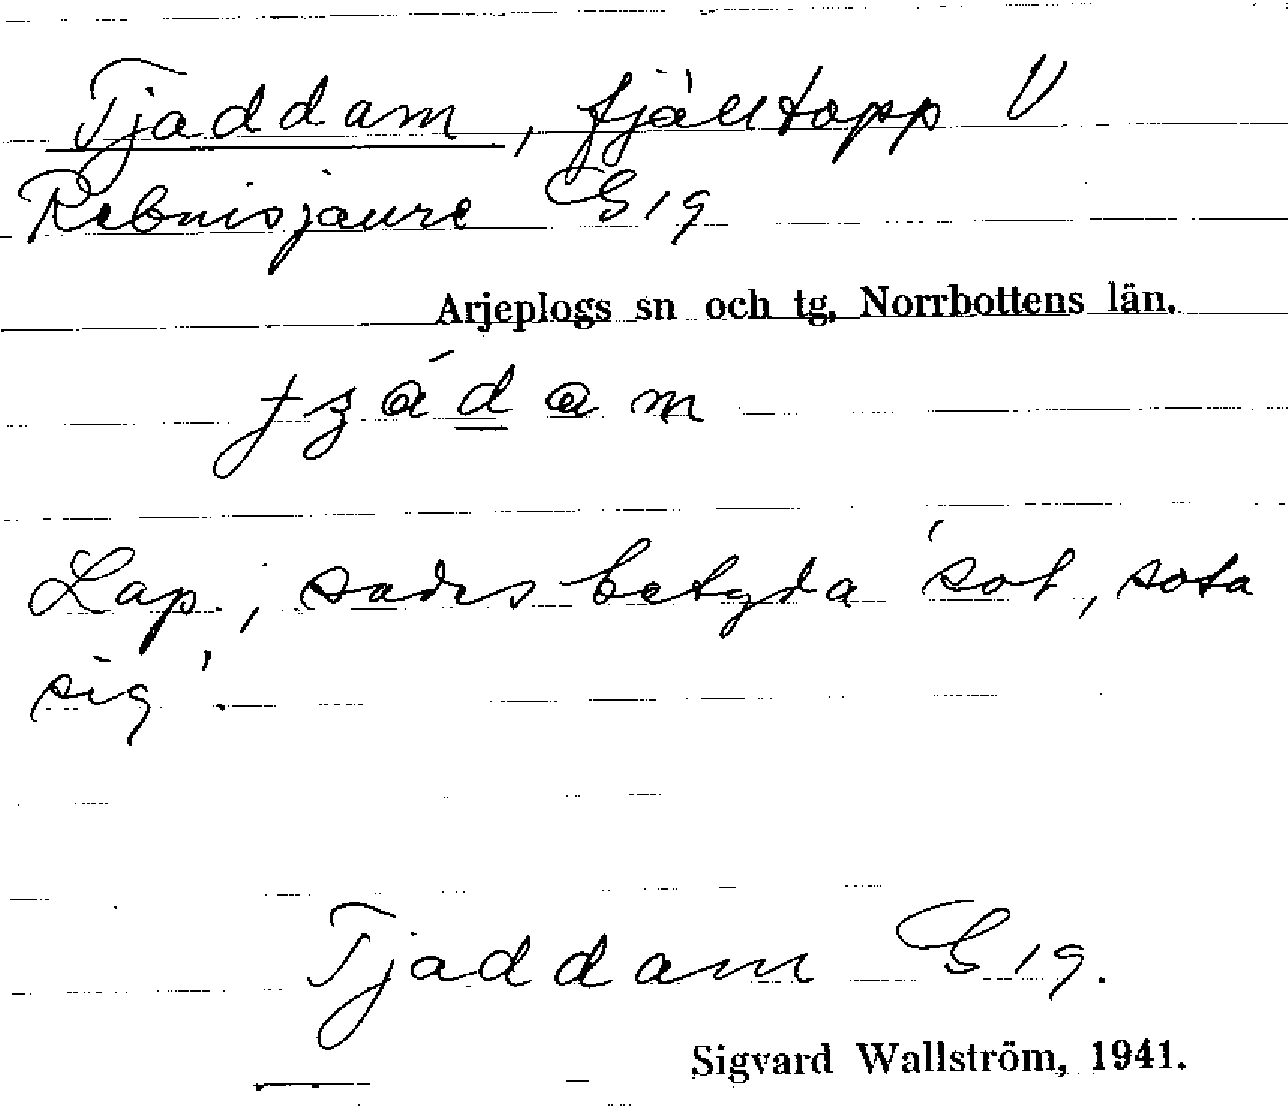 Tjaddam, fjälltopp V
Rebnisjaure G19
Arjeplogs sn och tg, Norrbottens län.
Lap.; sades betyda 'sot, sota
sig'.
Tjaddam G19.
Sigvard Wallström, 1941.